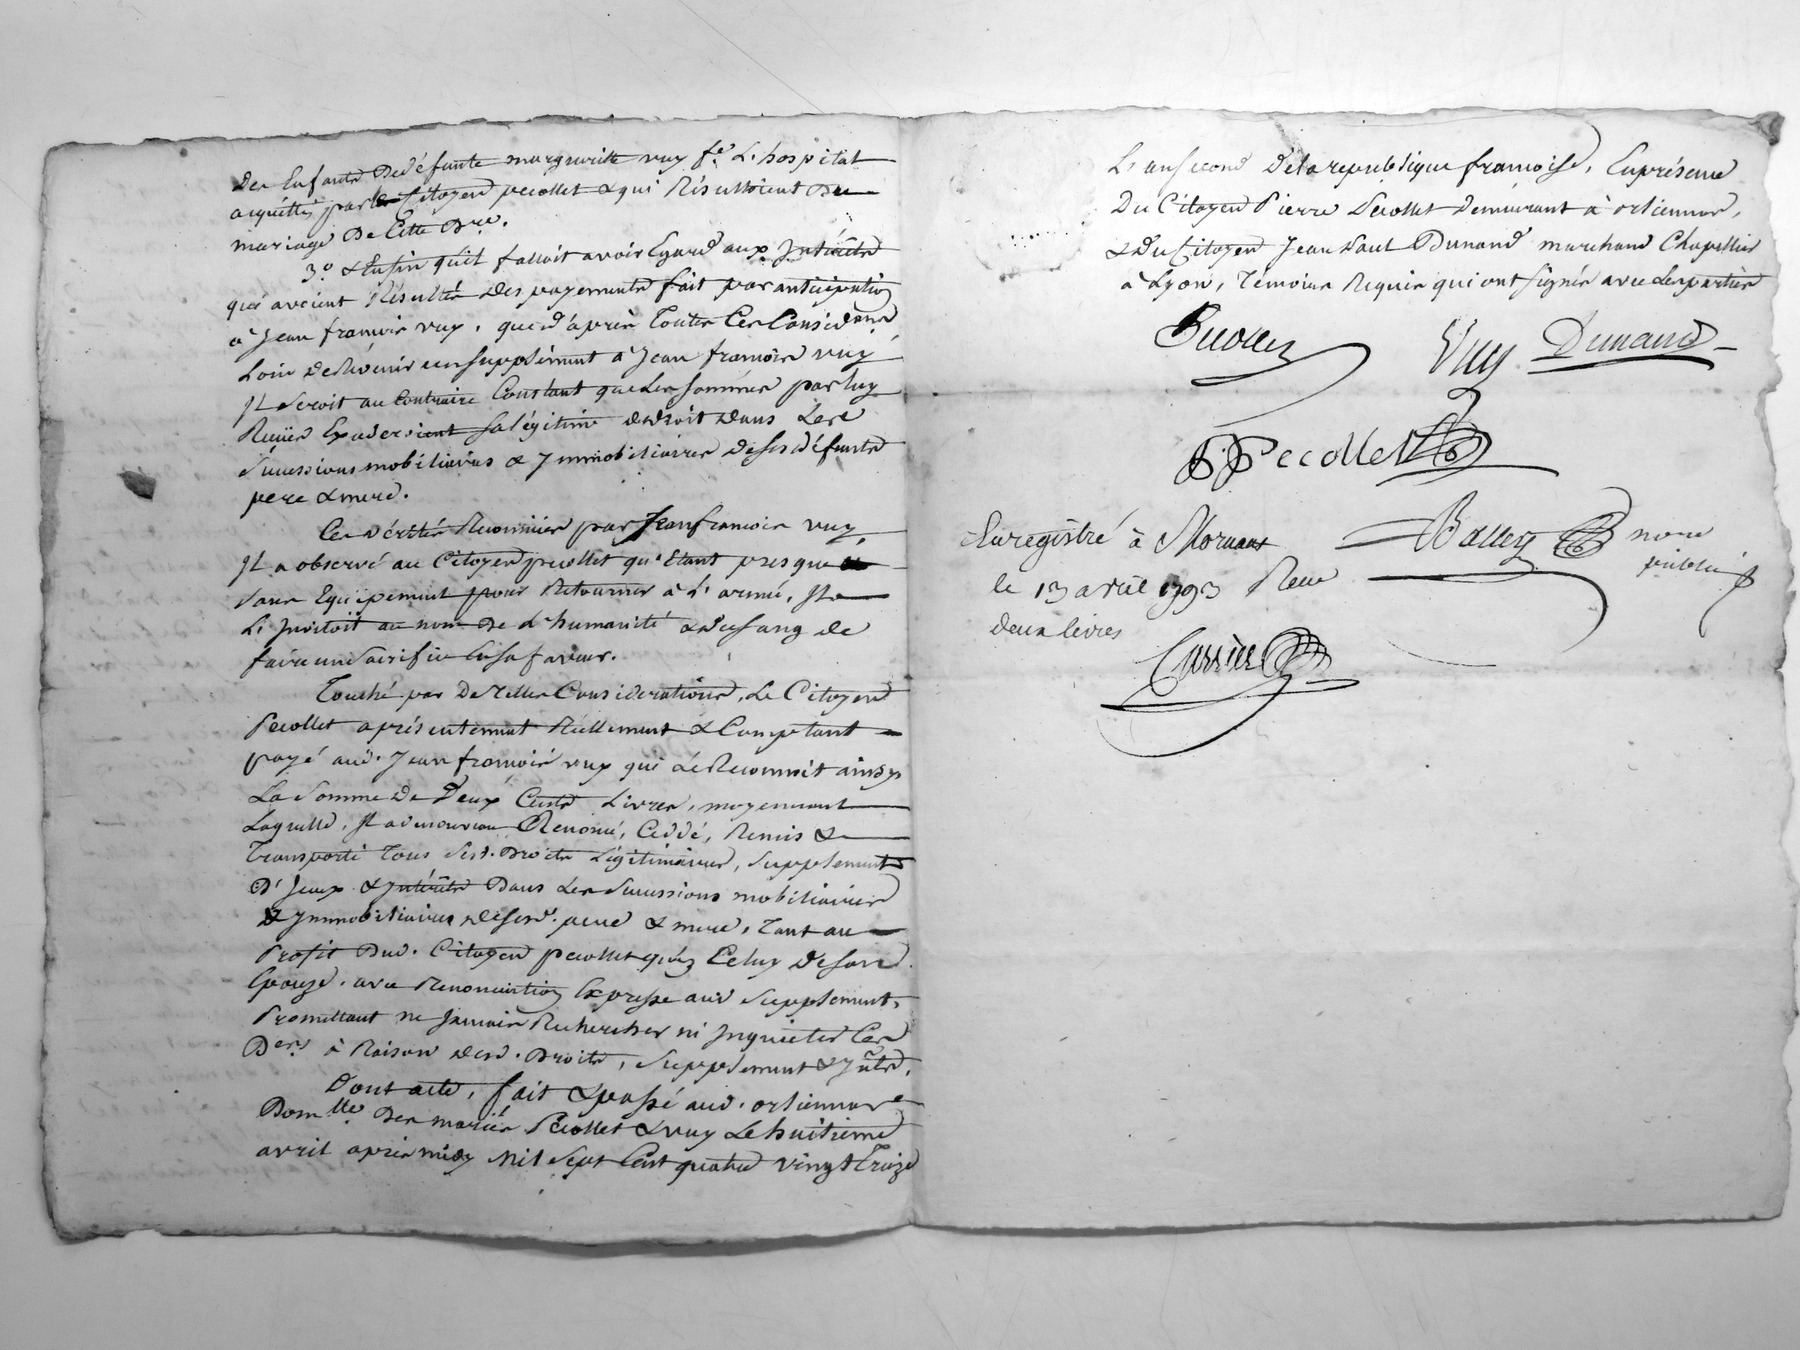 Des Enfants De défunte marguerite vuy fe. L'hospital
acquittés par le Citoyen pecollet & qui Résultoient Du
mariage De Cette Dre.
3o. & Enfin qu'il falloit avoir Egard aux Intérêts
qui avoient Résulté des payements fait par anticipation
à Jean françois vuy, que d'après Toutes Ces Considons
Loin de Revenir un supplément à Jean françois vuy
Il seroit au Contraire Constant que Les sommes par luy
Reçües Excederoient sa légitime de droit dans Les
successions mobiliaires & Immobiliaires de ses défunts
pere & mere.
Ces vérités Reconnües par Jean françois vuy
Il a observé au Citoyen pecollet qu'Etant presque
sans Equipement pour Retourner à L'armée, Il
L'Invitoit au nom De L'humanité & du sang de
faire un sacrifice En sa faveur.
Touché par De Telles Considerations, Le Citoyen
Pecollet a présentement Réellement & Comptant
payé aud. Jean françois vuy qui Le Reconnoit ainsy
La Somme De Deux Cents Livres, moyennant
Laquelle, Il a de nouveau Renoncé, Céddé, Remis &
Transporté Tous Sesd. Droits Légitimaires, Supplement
D'Iceux & Intérêts Dans Les Successions mobiliaires
& Immobiliaires de sesd. pere & mere, Tant au
Profit Dud. Citoyen pecollet qu'à Celuy De son
Epouse. avec Renonciation Expresse aud Supplement,
Promettant ne Jamais Rechercher ni Inquieter Ces
Ders. à Raison desd. Droits, Supplement & Ints.
Dont acte, fait & passé aud. orliennas
Domlle. Des mariés Pecollet & vuy Le huitieme
avril après midy Mil Sept Cent quatre vingt Treize
L'an second De la republique françoise, En présence
Du Citoyen Pierre Pecollet demeurant à orliennas,
& Du Citoyen Jean Paul Dunand marchand Chapellier
à Lyon, Témoins Requis qui ont signés avec Les parties
Vuy Dunand
P Pecollet
Enregistré à Mornant
Balley nore
public
le 13 avril 1793 Reçu
deux livres